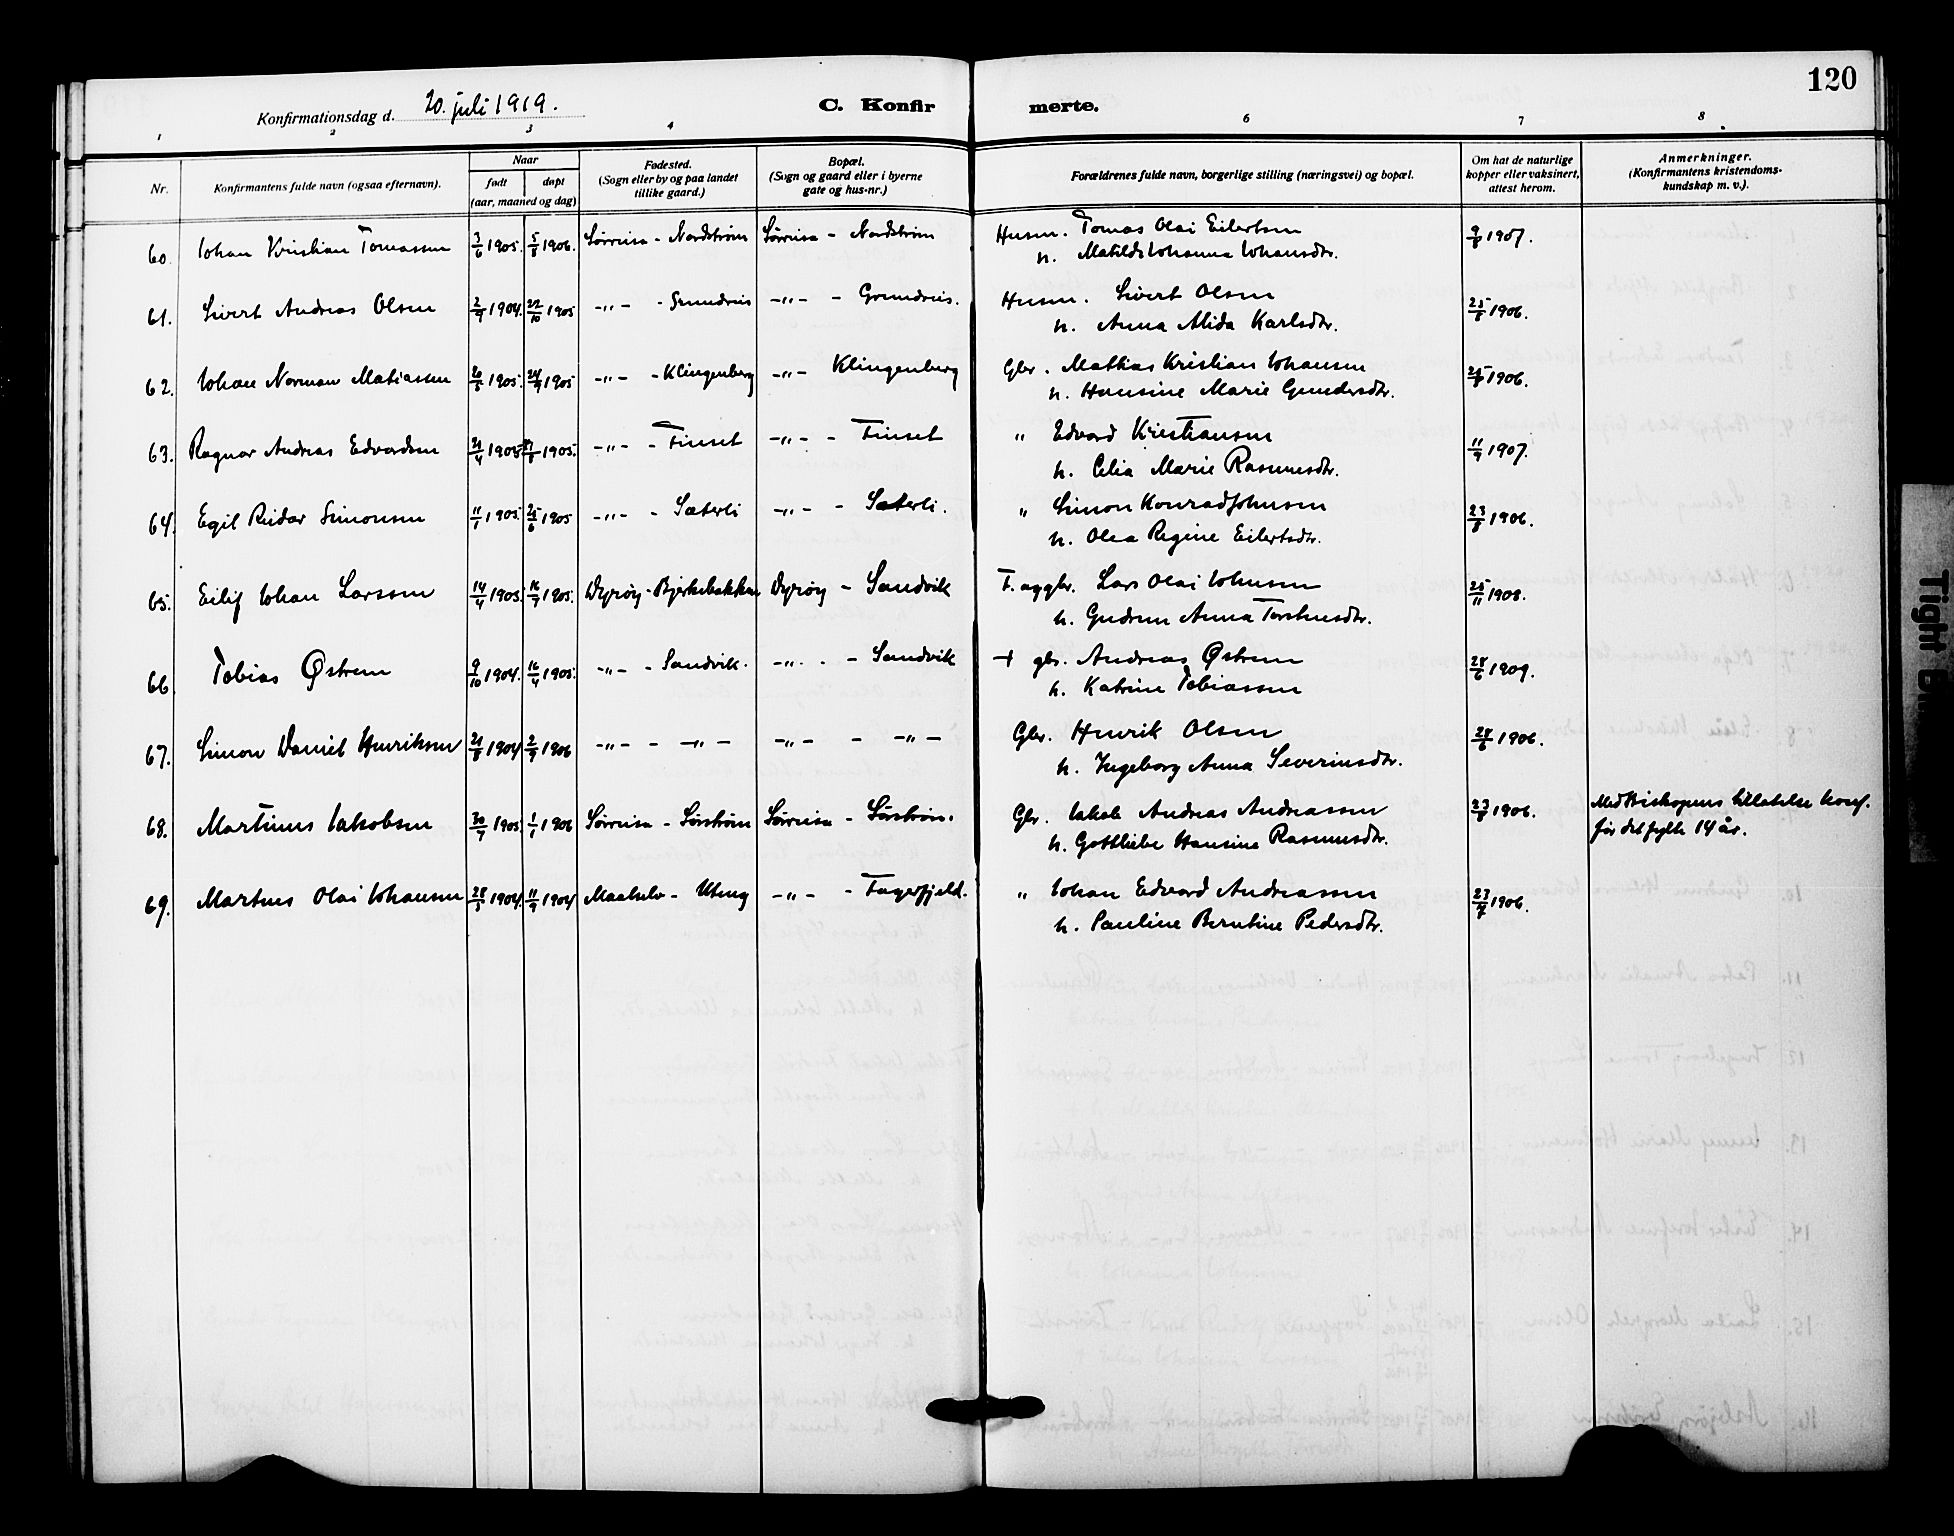 120
Konfirmationsdag d. 20. juli 1919.
C. Konfirmerte.
1 2 3 4 6 7 8
Nr.
Konfirmantens fulde navn (ogsaa efternavn).
Naar
født
døpt
(aar, maaned og dag)
Fødested.
(Sogn eller by og paa landet
tillike gaard.)
Bopæl.
(Sogn og gaard eller i byerne
gate og hus-nr.)
Forældrenes fulde navn, borgerlige stilling (næringsvei) og bopæl.
Om hat de naturlige
kopper eller vaksinert,
attest herom.
Anmerkninger.
(Konfirmantens kristendoms-
kundskap m. v.).
60. Johan Kristian Tomassen 3/6 1905. 5/8 1906. Sørreisa - Nordstrøm Sørreisa - Nordstrøm Husm. Tomas Olai Eilertsen 9/8 1907.
h. Matilde Johanna Johansdtr.
61. Sivert Andreas Olsen 2/9 1904. 22/10 1905 -"- - Grundreis -"- - Grundreis. Husm. Sivert Olsen 25/8 1906.
h. Anna Alida Karlsdtr.
62. Johan Norman Matiassen 20/5 1905. 24/9 1905 -"- - Klingenberg -"- Klingenberg Gbr. Mathias Kristian Johansen 25/8 1906.
h. Hansine Marie Gundersdtr.
63. Ragnar Andreas Edvardsen 21/4 1905 1905. -"- - Finset -"- - Finset " Edvard Kristiansen 11/9 1907.
h. Celia Marie Rasmusdtr.
64. Egil Reidar Simonsen 11/1 1905. 25/6 1905 -"- - Sæterli -"- - Sæterli. " Simon Konrad Johnsen 23/8 1906.
h. Olea Regine Eilertsdtr.
65. Eilif Johan Larssen 14/4 1905. 16/7 1905. Dyrøy - Bjerkebakken Dyrøy - Sandvik F. og gbr. Lars Olai Johnsen 25/11 1908.
h. Gudrun Anna Torstensdtr.
66. Tobias Østrem 9/10 1904. 16/4 1905. -"- - Sandvik. -"- - Sandvik + gbr. Andreas Østrem 28/6 1909.
h. Katrine Tobiassen
67. Simon Daniel Henriksen 21/8 1904 2/9 1906 -"- - -"- -"- - -"- Gbr. Henrik Olsen 28/6 1906.
h. Ingeborg Anna Severinsdtr.
68. Martinus Jakobsen 30/7 1905. 1/1 1906 Sørreisa - Sørstrøm Sørreisa - Sørstrøm. Gbr. Jakob Andreas Andreassen 23/8 1906. Med Biskopens tillatelse konf.
h. Gottliebe Hansine Rasmusdtr. før det fylte 14 år.
69. Martens Olai Johansen 28/5 1904. 11/9 1904 Maalselv - Uteng -"- - Fagerfjeld. " Johan Edvard Andreassen 23/7 1906.
h. Pauline Berntine Pedersdtr.
Tight